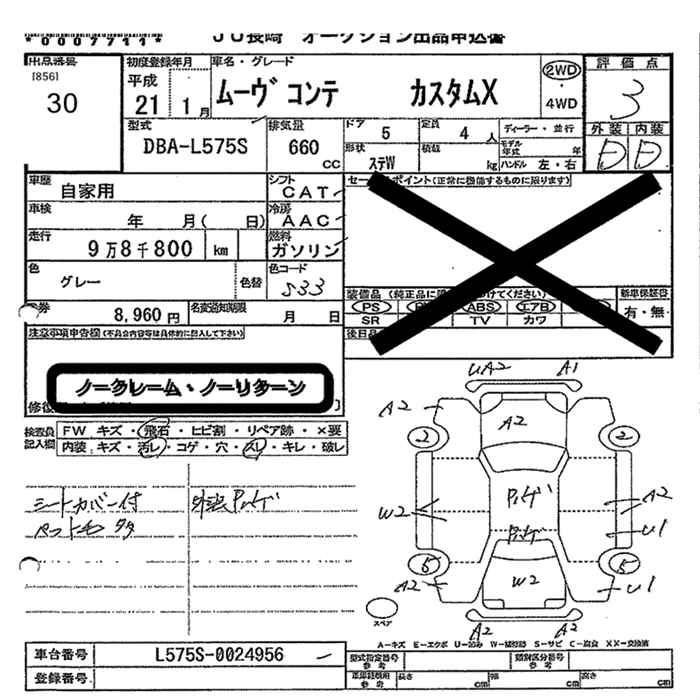 *0007711*
JU長崎 オークション出品申込書
出品番号
[856]
30
初度登録年月
平成
21 1月
車名・グレード
ムーヴ コンテ カスタムX
2WD
・
4WD
評価点
3
外装 内装
D D
型式
DBA-L575S
排気量
660
CC
ドア 5
定員 4人
ディーラー・並行
形状 ステW
積載 kg
モデル年式 年
ハンドル 左・右
車歴
自家用
シフト
CAT
車検
年 月( 日)
冷房
AAC
走行
9万8千800 km
燃料
ガソリン
色
グレー
色替
色コード
S33
券 8,960円
名変通知期限
月 日
セー ポイント(正常に機能するものに限ります)
装備品(純正品に けてください)
PS ABS エアB
SR TV カワ
新車保証書
有・無
後日品
注意事項申告欄(不具合内容等は具体的に記入して下さい)
ノークレーム・ノーリターン
修復
検査員記入欄
FW キズ・飛石・ヒビ割・リペア跡・×要
内装・キズ・汚レ・コゲ・穴・スレ・キレ・破レ
シートカバー付
ペット毛 多
外装 Pハゲ
UA2 A1
A2 A2
2 2
W2 Pハゲ A2
Pハゲ U1
5 5
A2 W2 U1
スペア
A2 A2
A-キズ E-エクボ U-凹み W-補修跡 S-サビ C-腐食 XX-交換済
車台番号 L575S-0024956
登録番号
型式指定番号 参考
類別区分番号 参考
車両諸費用 参考 長さ cm 幅 cm 高さ cm